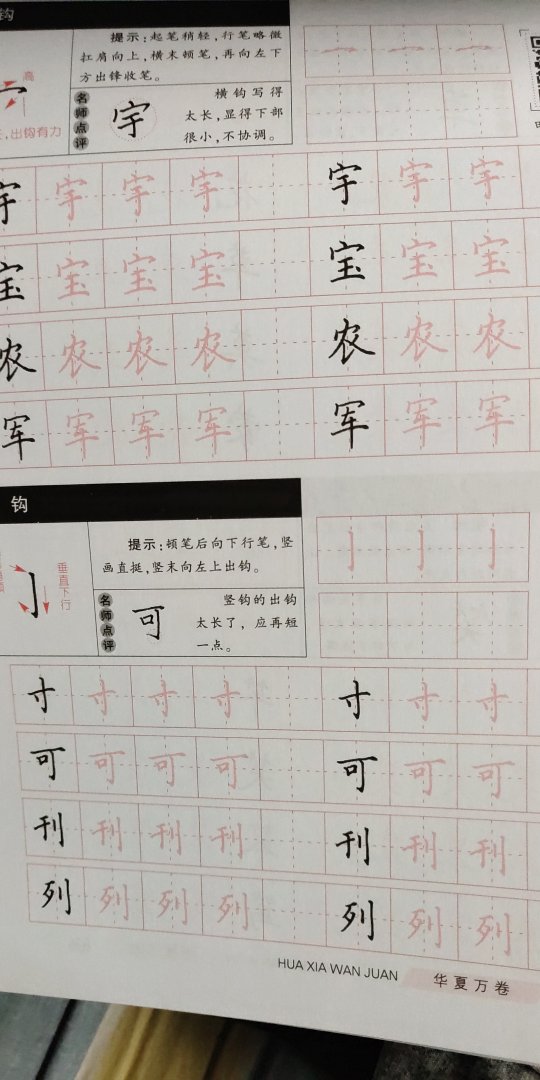 钩
提示:起笔稍轻,行笔略微
扛肩向上,横末顿笔,再向左下
方出锋收笔。
高
出钩有力
名师点评
宇
横钩写得
太长,显得下部
很小,不协调。
宇 宇 宇 宇 宇 宇 宇
宝 宝 宝 宝 宝 宝 宝
农 农 农 农 农 农 农
军 军 军 军 军 军 军
钩
提示:顿笔后向下行笔,竖
画直挺,竖末向左上出钩。
垂直下行
名师点评
可
竖钩的出钩
太长了,应再短
一点。
寸 寸 寸 寸 寸 寸 寸
可 可 可 可 可 可 可
刊 刊 刊 刊 刊 刊 刊
列 列 列 列 列 列 列
HUA XIA WAN JUAN 华夏万卷